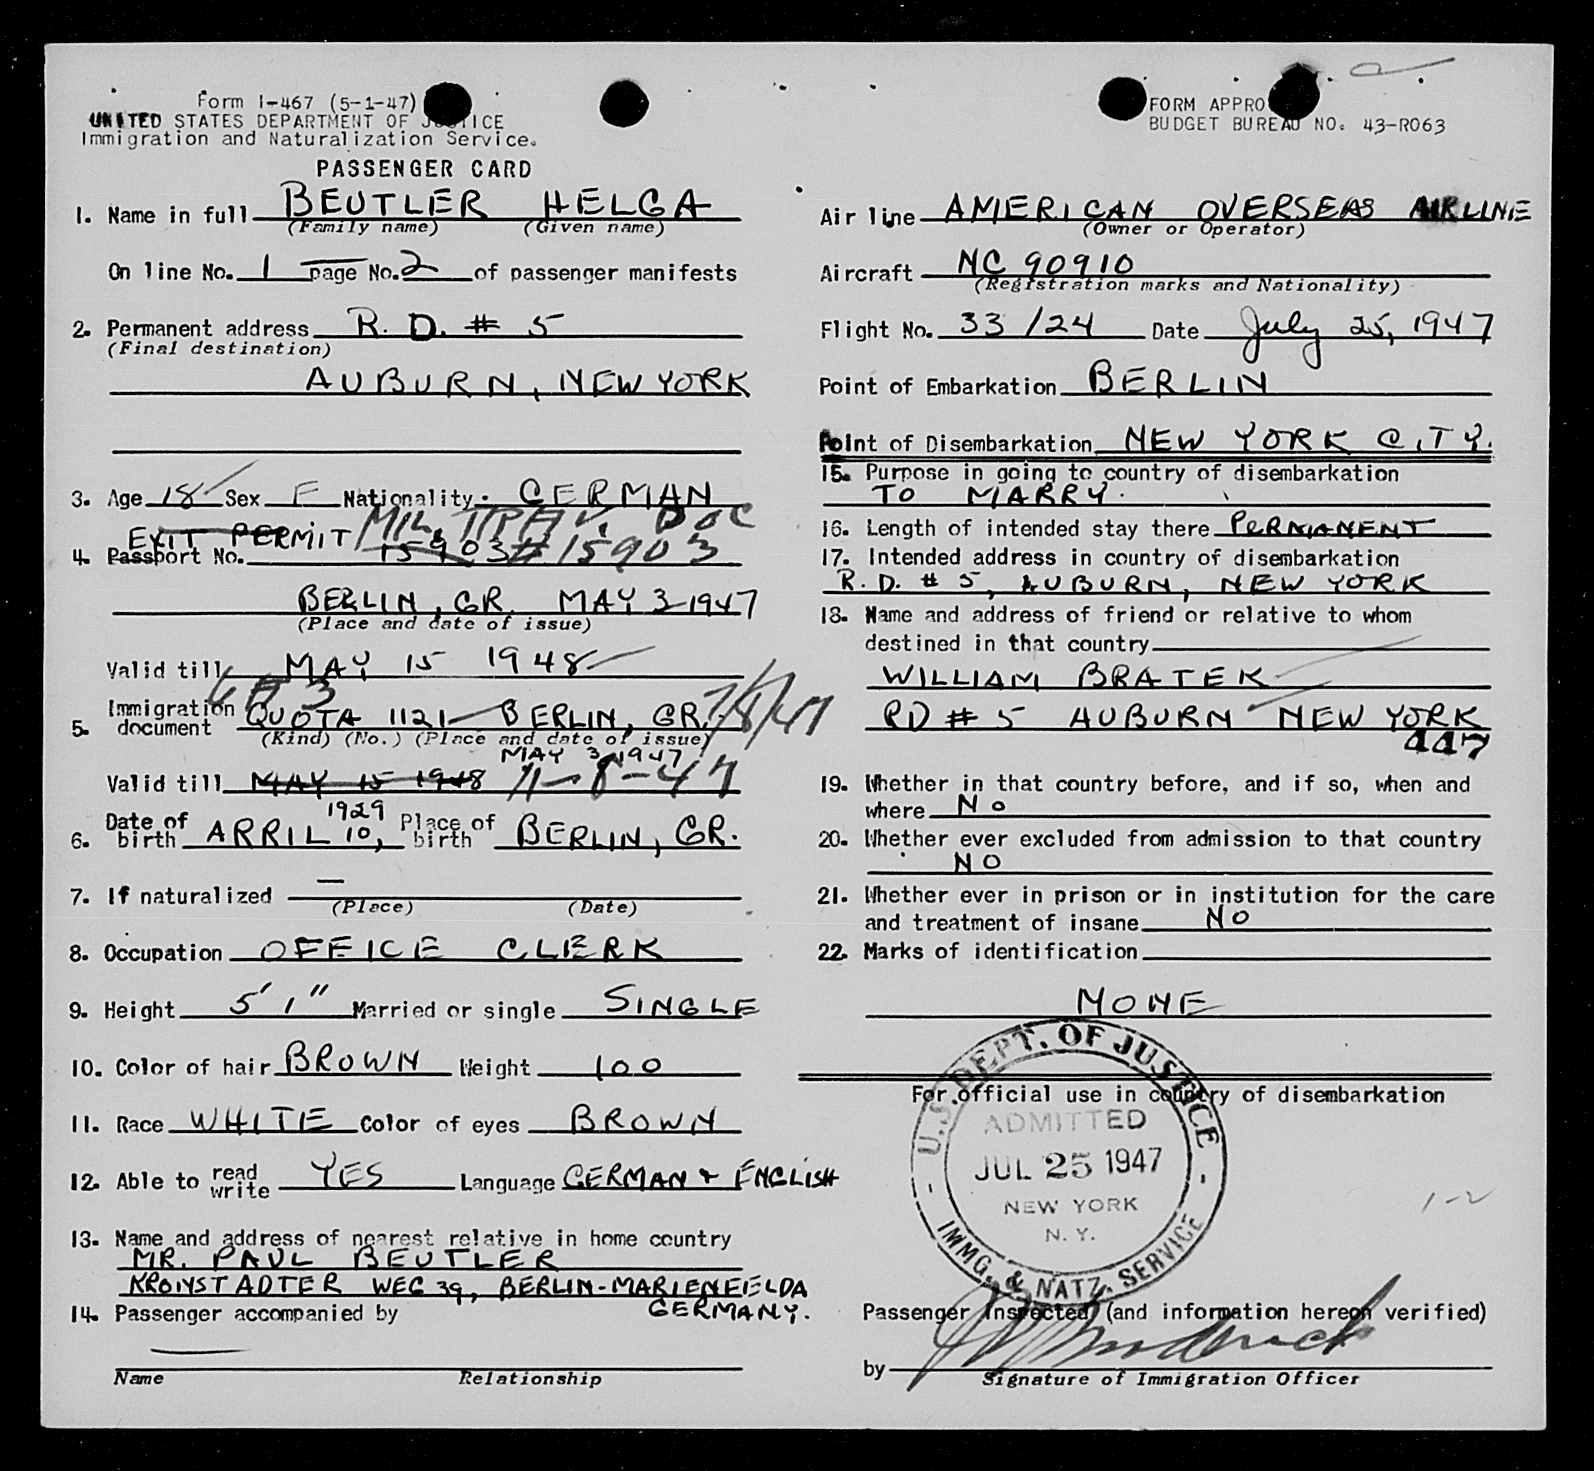 Form I-467 (5-1-47)
UNITED STATES DEPARTMENT OF JUSTICE
Immigration and Naturalization Service.
PASSENGER CARD
1. Name in full BEUTLER HELGA
(Family name) (Given name)
On line No. 1 page No. 2 of passenger manifests
2. Permanent address R. D. # 5
(Final destination)
AUBURN, NEW YORK
3. Age 18 Sex F Nationality GERMAN
EXIT PERMIT MIL. TRAV. DOC
4. Passport No. 15903 #15903
BERLIN, GR. MAY 3 1947
(Place and date of issue)
Valid till MAY 15 1948
6 # 3
5. Immigration document QUOTA 1121 BERLIN, GR. 7/8/47
(Kind) (No.) (Place and date of issue)
MAY 3, 1947
Valid till MAY 15 1948 11-8-47
1929
6. Date of birth APRIL 10, Place of birth BERLIN, GR.
7. If naturalized —
(Place) (Date)
8. Occupation OFFICE CLERK
9. Height 5' 1" Married or single SINGLE
10. Color of hair BROWN Weight 100
11. Race WHITE Color of eyes BROWN
12. Able to read write YES Language GERMAN + ENGLISH
13. Name and address of nearest relative in home country
MR. PAUL BEUTLER
WEG 39, BERLIN-MARIENFELDA
GERMANY.
14. Passenger accompanied by
—
Name Relationship
FORM APPRO
BUDGET BUREAU NO. 43-R063
Air line AMERICAN OVERSEAS AIRLINE
(Owner or Operator)
Aircraft NC 90910
(Registration marks and Nationality)
Flight No. 33/24 Date July 25, 1947
Point of Embarkation BERLIN
Point of Disembarkation NEW YORK CITY.
15. Purpose in going to country of disembarkation
TO MARRY.
16. Length of intended stay there PERMANENT
17. Intended address in country of disembarkation
R. D. # 5, AUBURN, NEW YORK
18. Name and address of friend or relative to whom
destined in that country
WILLIAM BRATEK
RD # 5 AUBURN NEW YORK
447
19. Whether in that country before, and if so, when and
where NO
20. Whether ever excluded from admission to that country
NO
21. Whether ever in prison or in institution for the care
and treatment of insane NO
22. Marks of identification
NONE
For official use in country of disembarkation
U.S. DEPT. OF JUSTICE
ADMITTED
JUL 25 1947
NEW YORK
N. Y.
IMMG. & NATZ. SERVICE
1-2
Passenger Inspected (and information hereon verified)
by
Signature of Immigration Officer